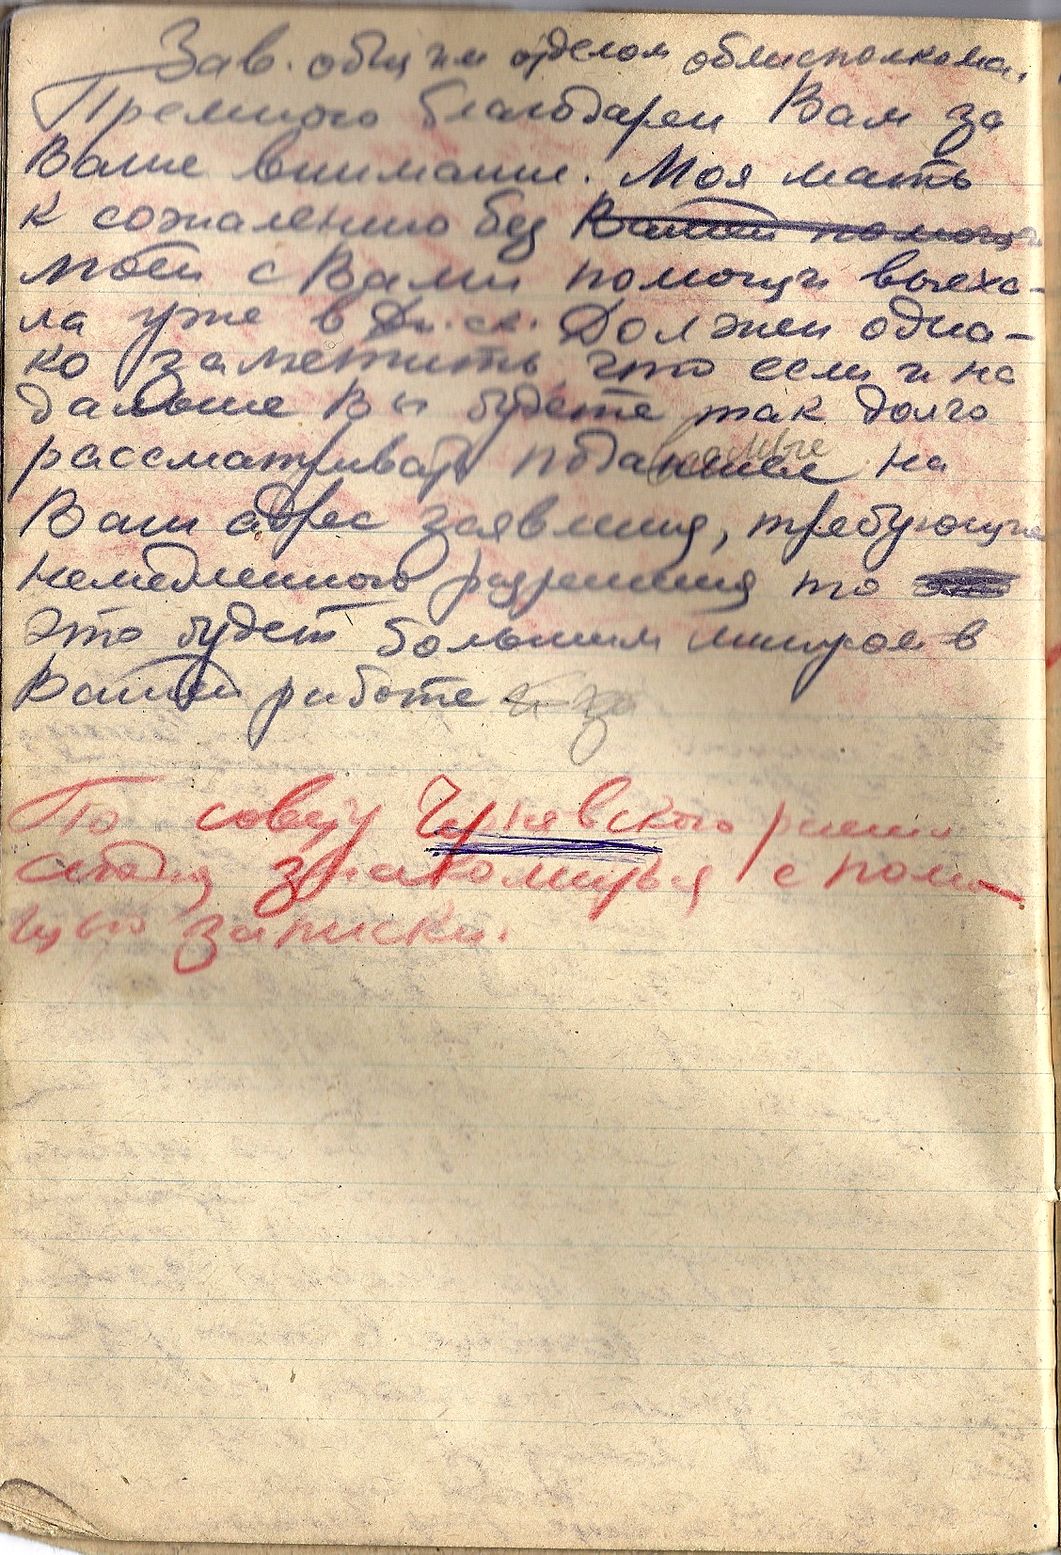 Зав. общим отделом облисполкома.
Премного благодарен Вам за
Ваше внимание. Моя мать
к сожалению без Вашей помощи
моей с Вами помощи выеха-
ла уже в Дн.ск. Должен одна-
ко заметить, что если и на
дальше Вы будете так долго
рассматривать поданные на
Ваш адрес заявления, требующие
немедленного разрешения то
это будет большим минусом в
Вашей работе
По совету Чернявского решил
сегодня знакомиться с помо
щью записки.